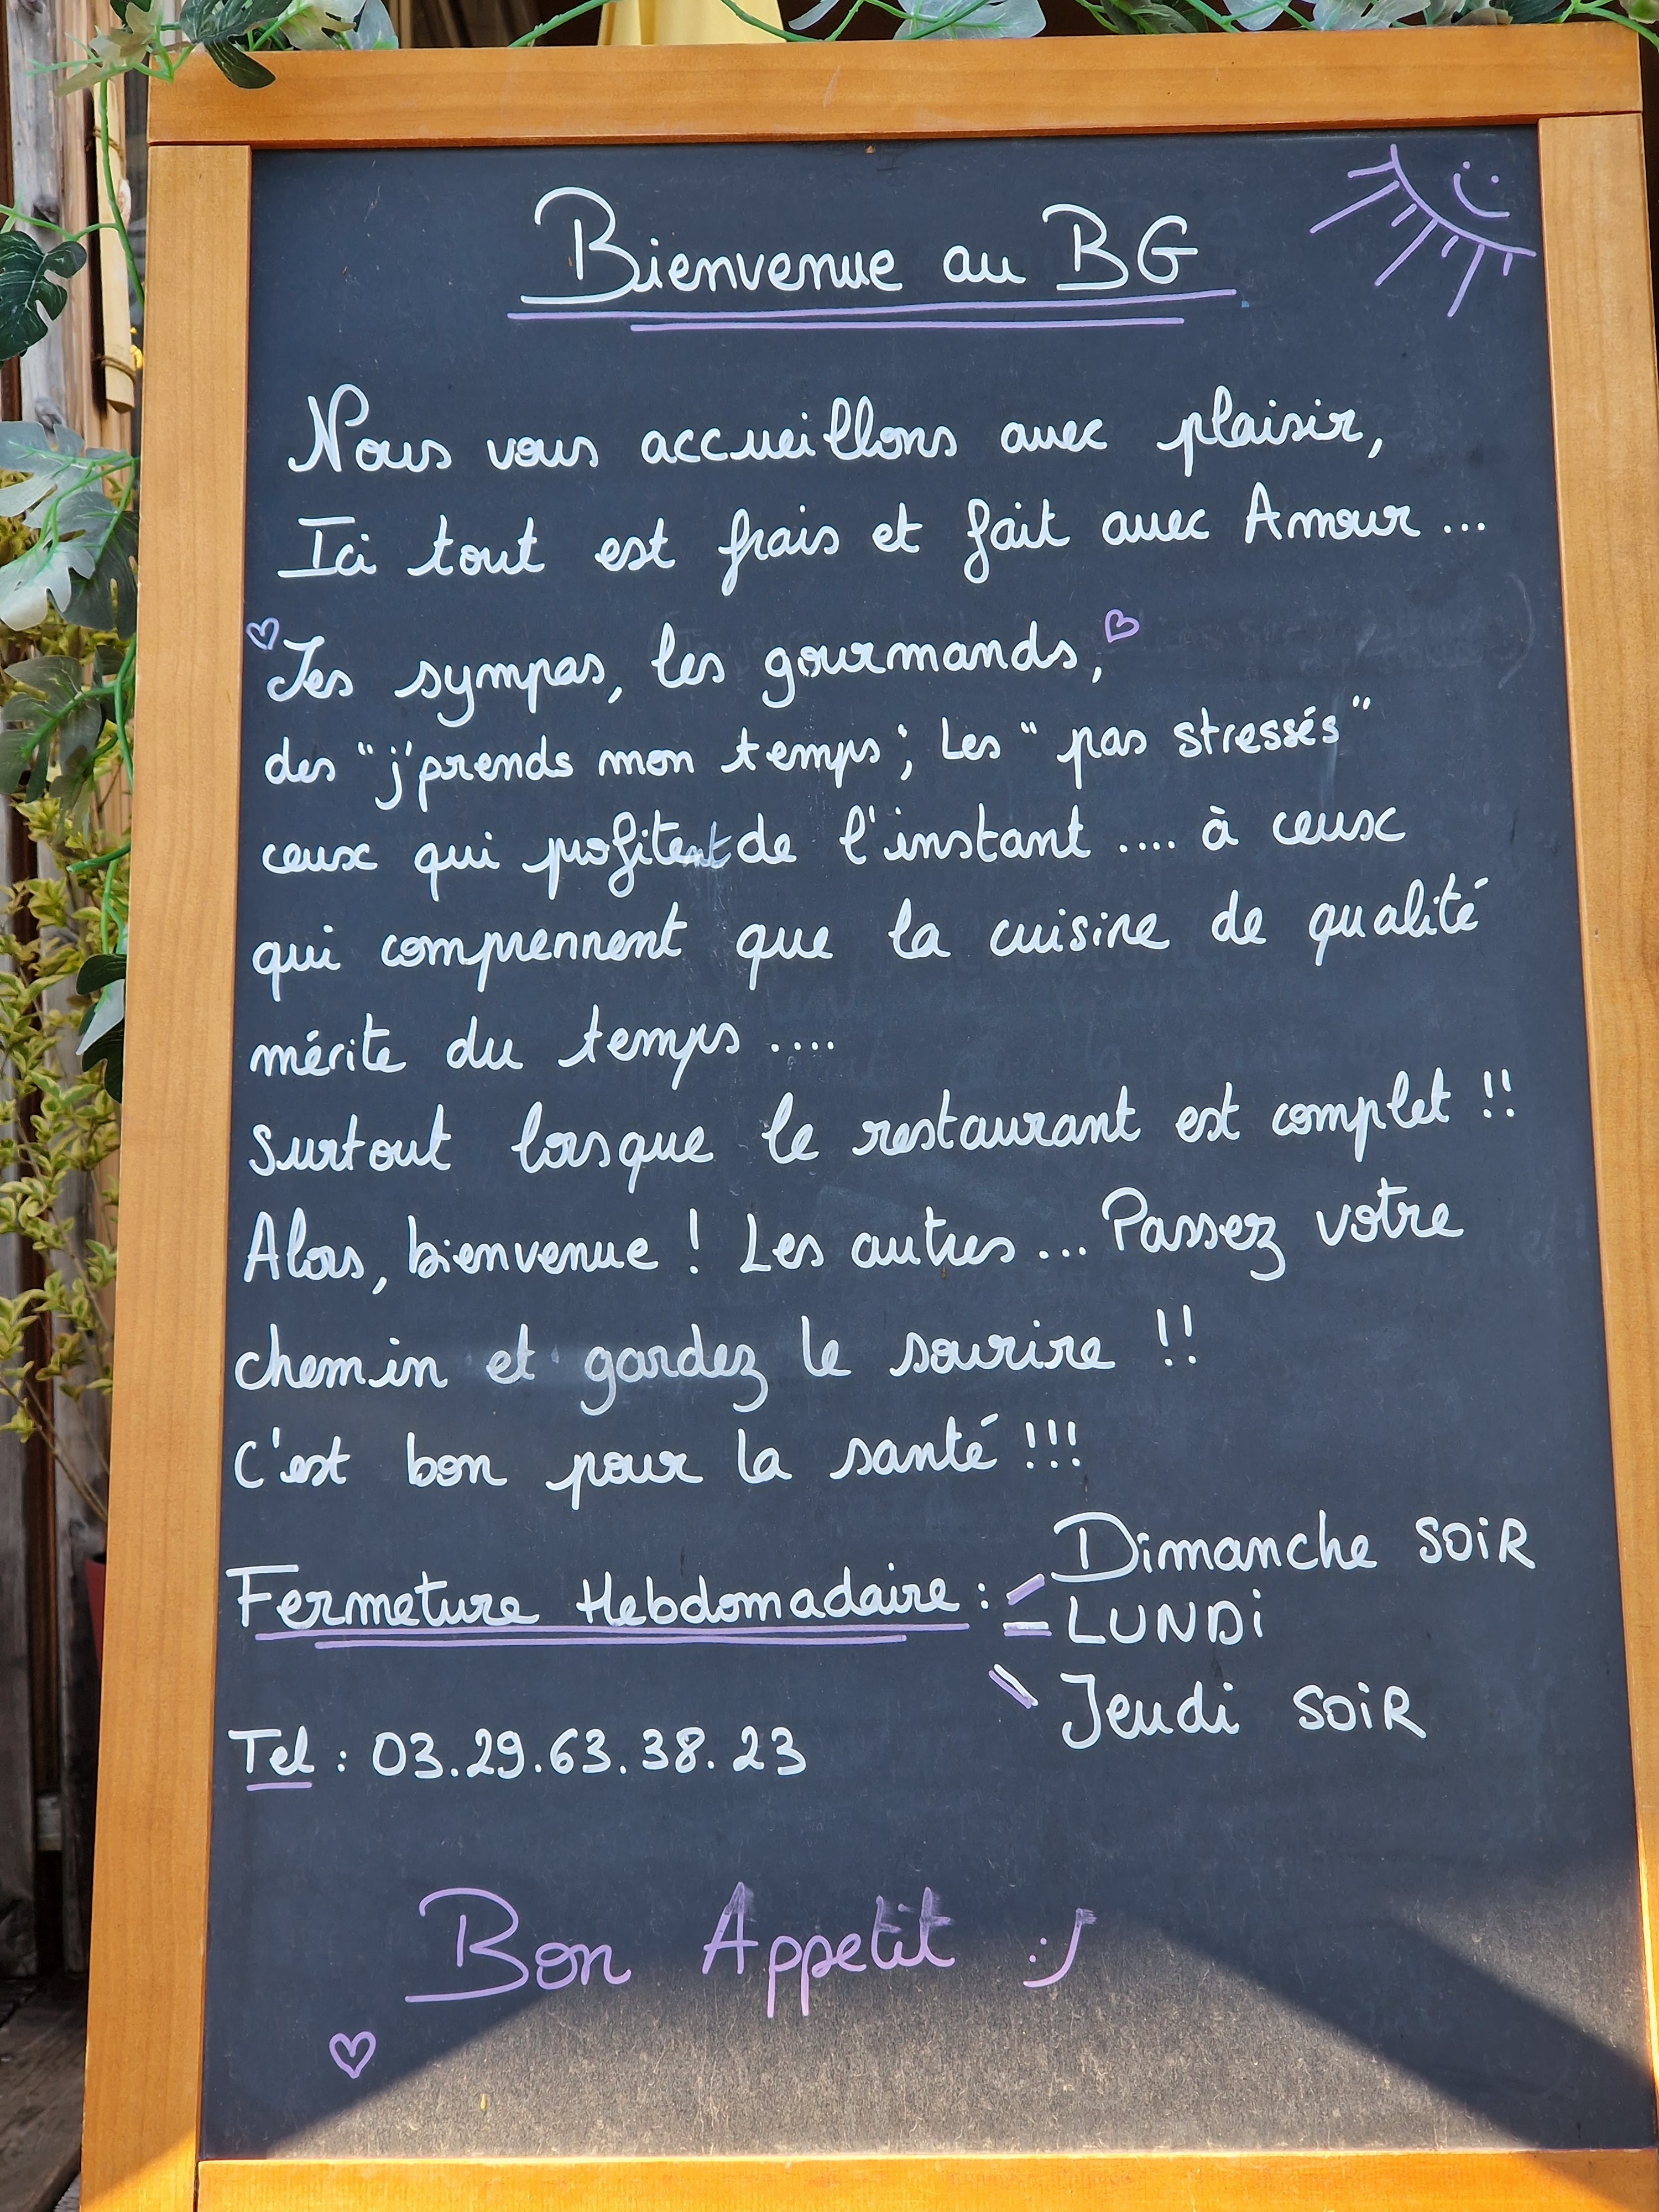 Bienvenue au BG
Nous vous accueillons avec plaisir,
Ici tout est frais et fait avec Amour ...
Les sympas, les gourmands,
des "j'prends mon temps"; Les "pas stressés"
ceux qui profitent de l'instant .... à ceux
qui comprennent que la cuisine de qualité
mérite du temps ....
Surtout lorsque le restaurant est complet !!
Alors, bienvenue ! Les autres ... Passez votre
chemin et gardez le sourire !!
C'est bon pour la santé !!!
Fermeture Hebdomadaire : - Dimanche SOIR
- LUNDI
- Jeudi SOIR
Tel : 03.29.63.38.23
Bon Appetit :)